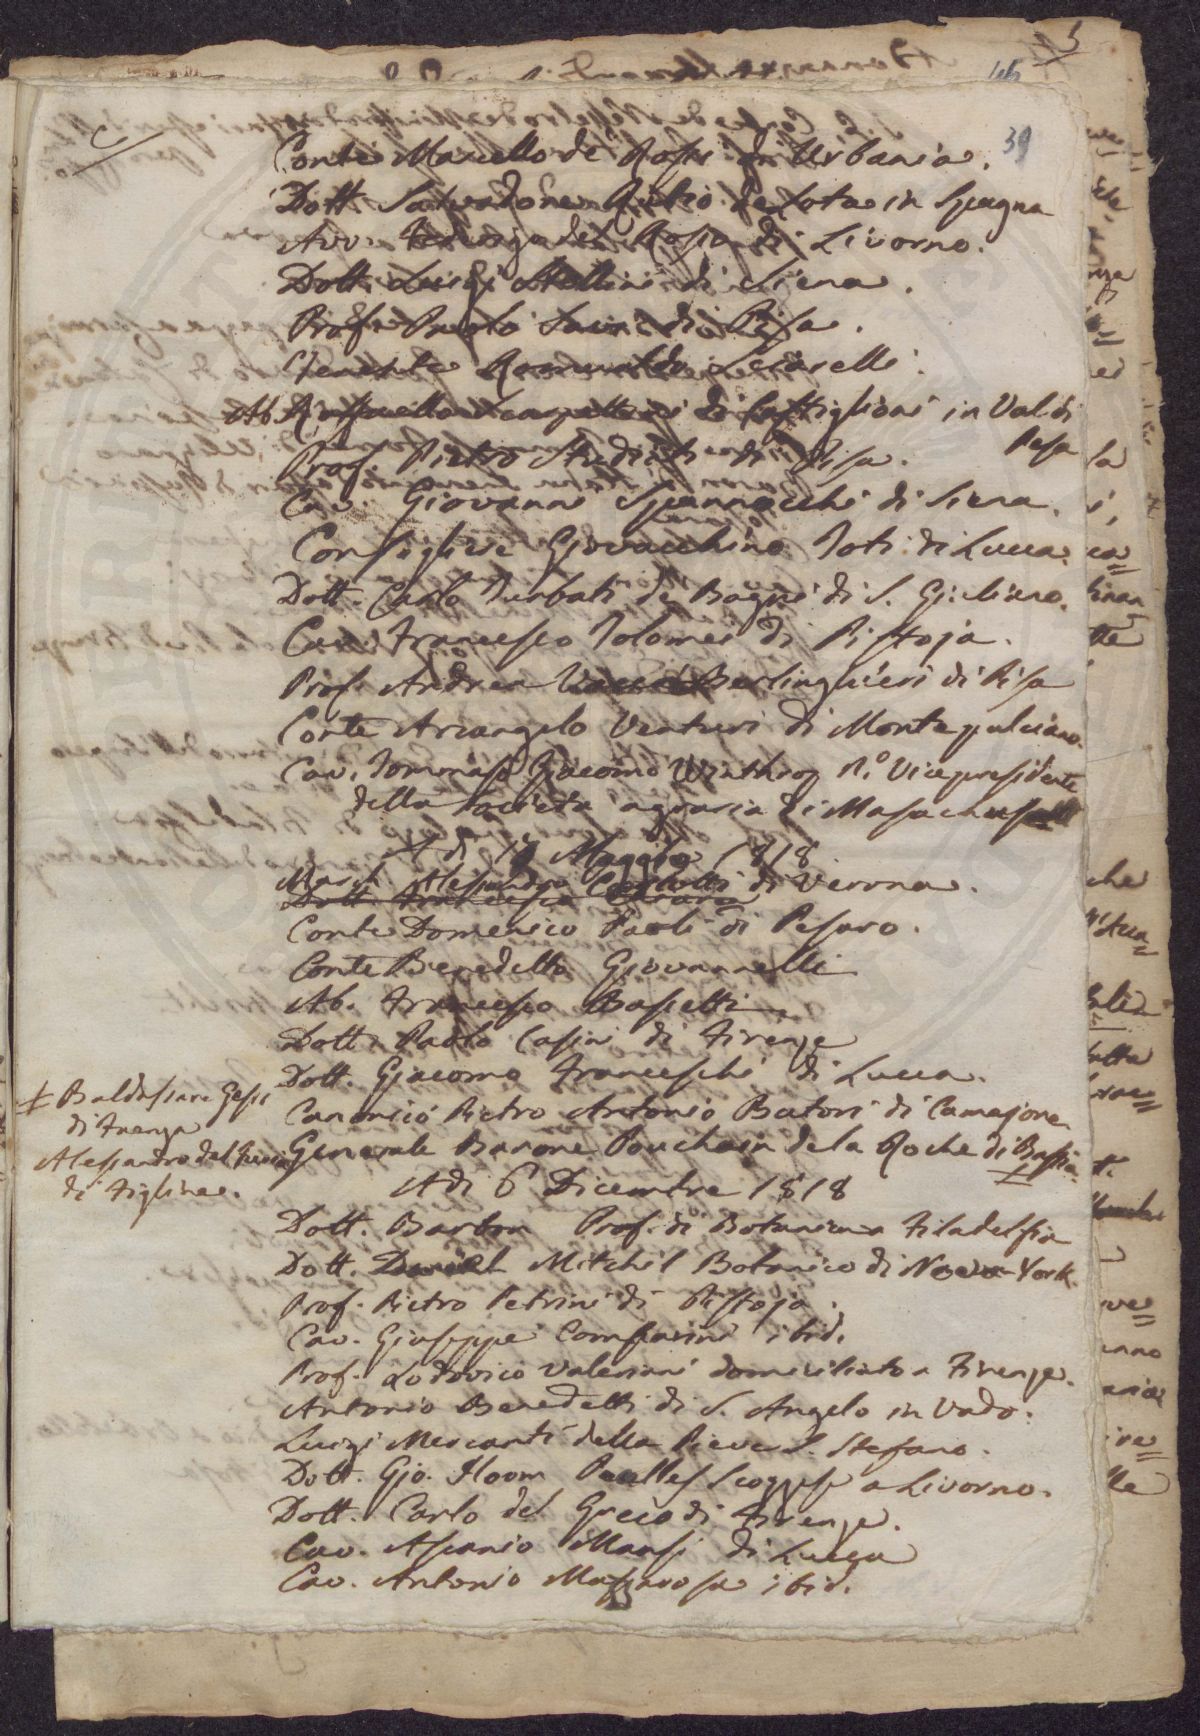 39
Conte Marcello de' Rossi di Urbania.
Dott. Salvadore Rubio de Lota in Spagna
Avv. del Rosso di Livorno.
Dott. Luigi Stellini di Siena.
Prof. Paolo Savi di Pisa.
Tenente Romualdo
Ab. Raffaello di Castiglioni in Val di
Pesa
Prof. Pietro Studiati di Pisa.
Cav. Giovanni Spannocchi di Siena.
Consigliere Giovacchino Toti di Lucca.
Dott. Carlo Turbati de Bagni di S. Giuliano.
Cav. Francesco Tolomei di Pistoja.
Prof. Andrea Vacca Berlinghieri di Pisa
Conte Arcangelo Venturi di Montepulciano.
Cav. Tommaso Giacomo Winthrop R.o Vicepresidente
della società agraria di Masachusett
A di Maggio 1818
March. Alessandro Carlotti di Verona.
Dott. Francesco
Conte Domenico Paoli di Pesaro.
Conte Benedetto Giovannelli
Ab. Francesco Bassetti
Dott. Paolo Casini di Firenze
Dott. Giacomo Franceschi di Lucca.
Canonico Pietro Antonio Butori di Camajore
Generale Barone Pouchain dela Roche di Bastia.
Baldassare Gessi
di Faenza
Alessandro del
di Figline.
Adi 6 Dicembre 1818
Dott. Barton Prof. di Botanica a Filadelfia
Dott. Mitchil Botanico di Nova-York.
Prof. Pietro Petrini di Pistoja.
Cav. Giuseppe Comparini ibid.
Prof. Lodovico Valeriani domiciliato a Firenze.
Antonio Benedetti di S. Angelo in Vado.
Luigi Mercanti della Pieve S. Stefano.
Dott. Gio. Scozzese a Livorno.
Dott. Carlo del Greco di Firenze.
Cav. Ascanio Mansi di Lucca
Cav. Antonio Mazzarosa ibid.